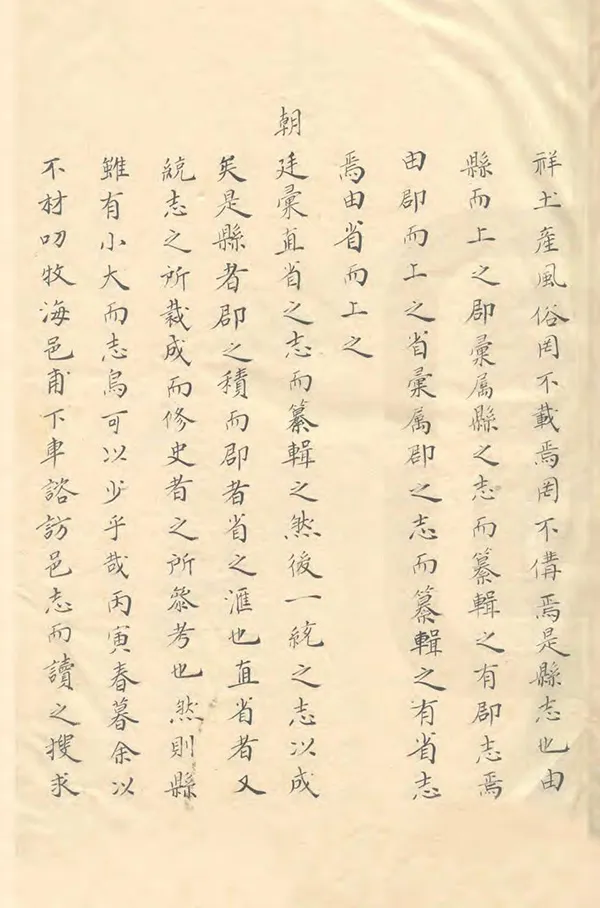 祥土產風俗罔不載焉罔不備焉是縣志也由
縣而上之郡彙属縣之志而纂輯之有郡志焉
由郡而上之省彙属郡之志而纂輯之有省志
焉由省而上之
朝廷彙直省之志而纂輯之然後一統之志以成
矣是縣者郡之積而郡者省之滙也直省者又
統志之所裁成而修史者之所叅考也然則縣
雖有小大而志烏可以少乎哉丙寅春暮余以
不材叨牧海邑甫下車諮訪邑志而讀之搜求